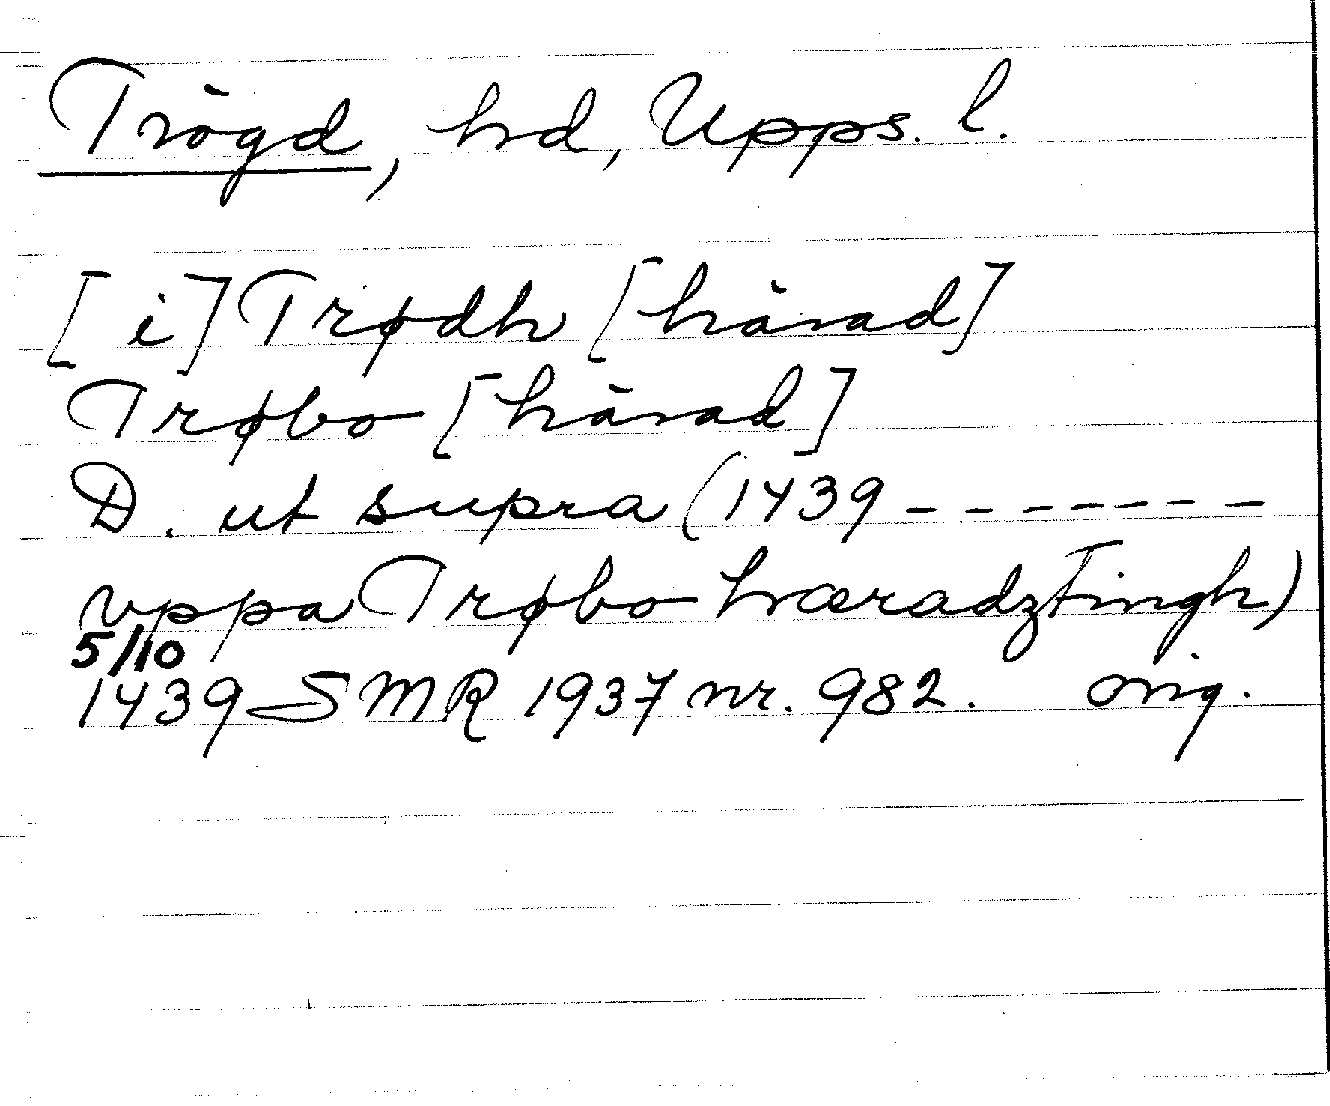 Trögd, hd, Upps. l.
[i] Trødh [härad]
Trøbo [härad]
D. ut supra (1439 - - - - - - -
vppa Trøbo hæradztingh)
5/10
1439 SMR 1937 nr. 982. orig.